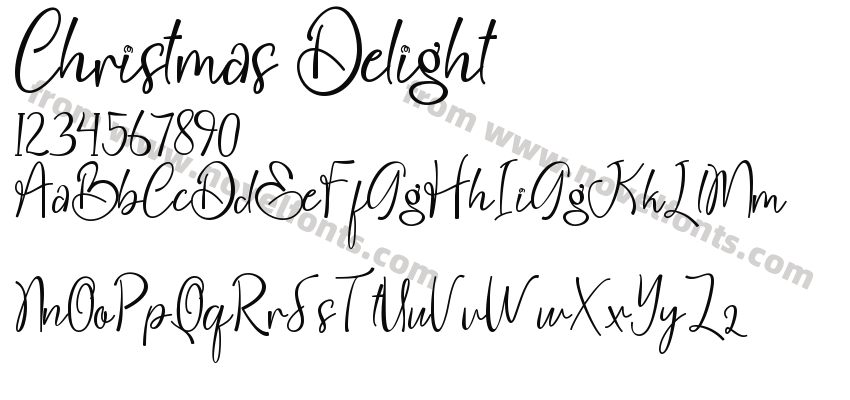 Christmas Delight
1234567890
AaBbCcDdEeFfGgHhIiGgKkLlMm
NnOoPpQqRrSsTtUuVvWwXxYyZz
from www.novelfonts.com
from www.novelfonts.com